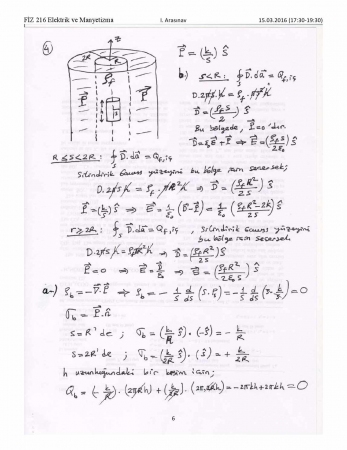 FİZ 216 Elektrik ve Manyetizma I. Arasınav 15.03.2016 (17:30-19:30)
4) z
R 2R ρf P P s h
P = (k/s) ŝ
b) s<R: ∮ D.da = Qf,iç
D.2πsh = ρf.πs²h
D = (ρf s/2) ŝ
Bu bölgede, P=0'dır.
D=ε0E+P ⇒ E=(ρf s/2ε0) ŝ
R≤s<2R: ∮ D.da = Qf,iç
Silindirik Gauss yüzeyini bu bölge için seçersek;
D.2πsh = ρf.πR²h ⇒ D=(ρfR²/2s) ŝ
P=(k/s)ŝ ⇒ E=1/ε0 (D-P) = 1/ε0 (ρfR²-2k/2s) ŝ
r≥2R: ∮ D.da=Qf,iç, silindirik Gauss yüzeyini
bu bölge için seçersek
D.2πsh = ρfπR²h ⇒ D=(ρfR²/2s) ŝ
P=0 ⇒ E=D/ε0 ⇒ E=(ρfR²/2ε0s) ŝ
a-) ρb=-∇.P ⇒ ρb = -1/s d/ds (s.Ps) = -1/s d/ds (s.k/s) = 0
σb = P.n̂
s=R'de ; σb = (k/R ŝ).(-ŝ) = - k/R
s=2R'de ; σb = (k/2R ŝ).(ŝ) = + k/2R
h uzunluğundaki bir kesim için;
Qb = (-k/R).(2πRh) + (k/2R).(2π2Rh) = -2πkh+2πkh = 0
6